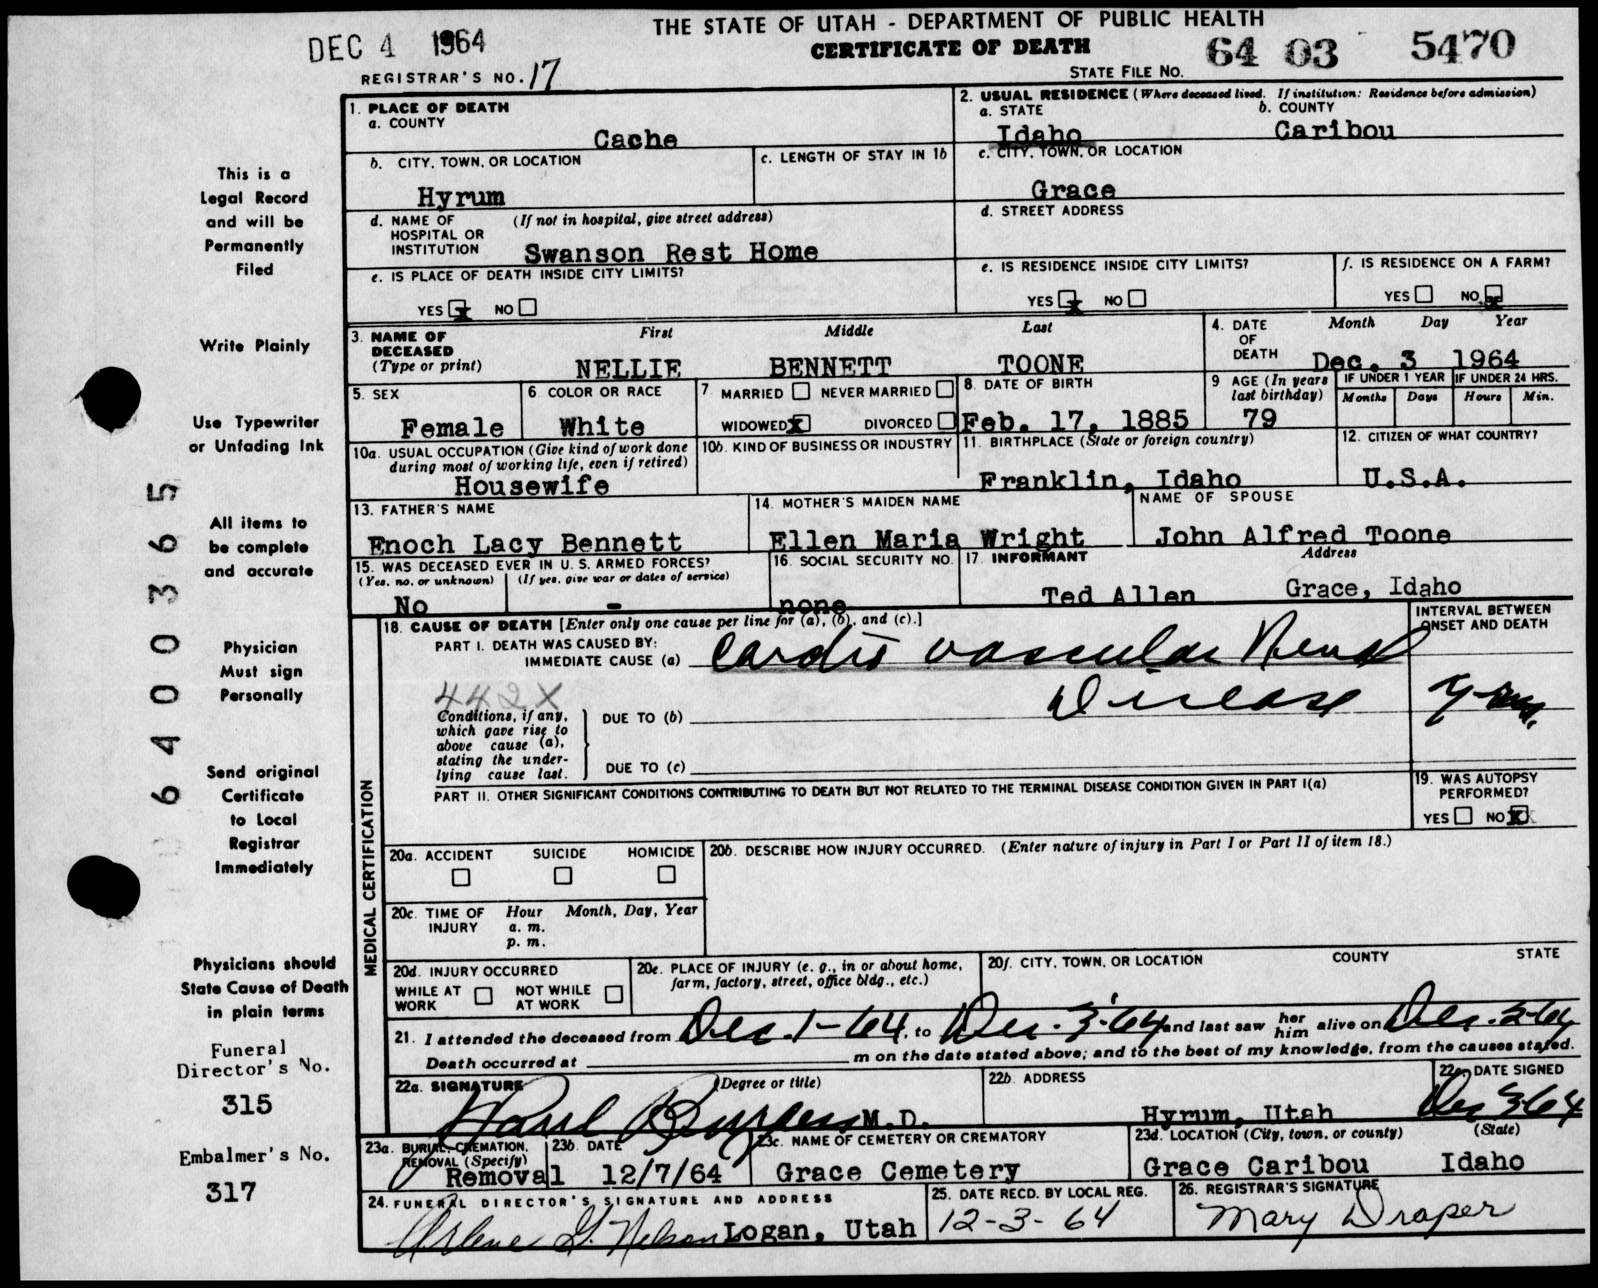 THE STATE OF UTAH - DEPARTMENT OF PUBLIC HEALTH
DEC 4 1964
CERTIFICATE OF DEATH
64 03 5470
REGISTRAR'S NO. 17
STATE FILE NO.
1. PLACE OF DEATH
a. COUNTY
Cache
2. USUAL RESIDENCE (Where deceased lived. If institution: Residence before admission)
a. STATE
Idaho
b. COUNTY
Caribou
b. CITY, TOWN, OR LOCATION
Hyrum
c. LENGTH OF STAY IN 1b
c. CITY, TOWN, OR LOCATION
Grace
d. NAME OF HOSPITAL OR INSTITUTION
(If not in hospital, give street address)
Swanson Rest Home
d. STREET ADDRESS
e. IS PLACE OF DEATH INSIDE CITY LIMITS?
YES X NO
e. IS RESIDENCE INSIDE CITY LIMITS?
YES X NO
f. IS RESIDENCE ON A FARM?
YES NO X
3. NAME OF DECEASED
(Type or print)
First Middle Last
NELLIE BENNETT TOONE
4. DATE OF DEATH
Month Day Year
Dec. 3 1964
5. SEX
Female
6 COLOR OR RACE
White
7 MARRIED NEVER MARRIED
WIDOWED X DIVORCED
8. DATE OF BIRTH
Feb. 17, 1885
9 AGE (In years last birthday)
79
IF UNDER 1 YEAR
Months Days
IF UNDER 24 HRS.
Hours Min.
10a. USUAL OCCUPATION (Give kind of work done during most of working life, even if retired)
Housewife
10b. KIND OF BUSINESS OR INDUSTRY
11. BIRTHPLACE (State or foreign country)
Franklin, Idaho
12. CITIZEN OF WHAT COUNTRY?
U.S.A.
13. FATHER'S NAME
Enoch Lacy Bennett
14. MOTHER'S MAIDEN NAME
Ellen Maria Wright
NAME OF SPOUSE
John Alfred Toone
15. WAS DECEASED EVER IN U. S. ARMED FORCES?
(Yes, no, or unknown) (If yes, give war or dates of service)
No -
16. SOCIAL SECURITY NO.
none
17. INFORMANT Address
Ted Allen Grace, Idaho
18. CAUSE OF DEATH [Enter only one cause per line for (a), (b), and (c).]
INTERVAL BETWEEN ONSET AND DEATH
PART I. DEATH WAS CAUSED BY:
IMMEDIATE CAUSE (a) Cardio vascular Renal
Disease
442X
Conditions, if any, which gave rise to above cause (a), stating the underlying cause last.
DUE TO (b)
DUE TO (c)
PART II. OTHER SIGNIFICANT CONDITIONS CONTRIBUTING TO DEATH BUT NOT RELATED TO THE TERMINAL DISEASE CONDITION GIVEN IN PART I(a)
19. WAS AUTOPSY PERFORMED?
YES NO X
MEDICAL CERTIFICATION
20a. ACCIDENT SUICIDE HOMICIDE
20b. DESCRIBE HOW INJURY OCCURRED. (Enter nature of injury in Part I or Part II of item 18.)
20c. TIME OF INJURY
Hour Month, Day, Year
a. m.
p. m.
20d. INJURY OCCURRED
WHILE AT WORK NOT WHILE AT WORK
20e. PLACE OF INJURY (e. g., in or about home, farm, factory, street, office bldg., etc.)
20f. CITY, TOWN, OR LOCATION COUNTY STATE
21. I attended the deceased from Dec. 1-64, to Dec. 3-64 and last saw her him alive on Dec. 2-64
Death occurred at m on the date stated above; and to the best of my knowledge, from the causes stated.
22a. SIGNATURE (Degree or title)
Paul Burgess M.D.
22b. ADDRESS
Hyrum, Utah
22c. DATE SIGNED
Dec 3-64
23a. BURIAL, CREMATION, REMOVAL (Specify)
Removal
23b. DATE
12/7/64
23c. NAME OF CEMETERY OR CREMATORY
Grace Cemetery
23d. LOCATION (City, town, or county) (State)
Grace Caribou Idaho
24. FUNERAL DIRECTOR'S SIGNATURE AND ADDRESS
Arlene G. Nelson Logan, Utah
25. DATE RECD. BY LOCAL REG.
12-3-64
26. REGISTRAR'S SIGNATURE
Mary Draper
This is a
Legal Record
and will be
Permanently
Filed
Write Plainly
Use Typewriter
or Unfading Ink
All items to
be complete
and accurate
Physician
Must sign
Personally
Send original
Certificate
to Local
Registrar
Immediately
Physicians should
State Cause of Death
in plain terms
Funeral
Director's No.
315
Embalmer's No.
317
6400365